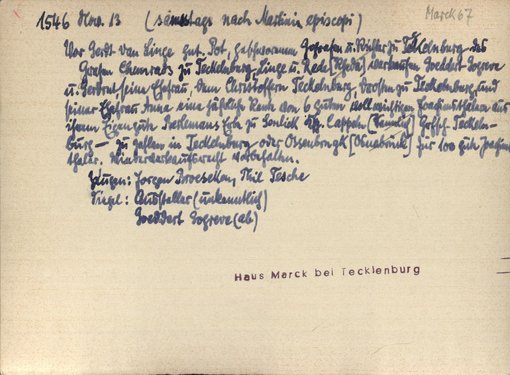 1546 Nov. 13 (samstags nach Martini episcopi) Marck 67
Vor Gerdt van Linge gnt. Pot, geschworenem Gografen u. Richter zu Tecklenburg des
Grafen Chonrads zu Tecklenburg, Linge u. Rede [Rheda] verkaufen Goeddert Gogreve
u. Gerdrut seine Ehefrau, dem Christoffern Tecklenburg, Drosten zu Tecklenburg und
seiner Ehefrau Anne eine jährliche Rente von 6 guten vollwichtigen Joachimsthalern aus
ihrem Eigengute Erbe zu Ksp. Lappeln Grfsch. Tecklen-
burg – zu zahlen in Tecklenburg oder Ossenbrugk [Osnabrück] für 100 gute Joachims-
thaler. Wiederverkaufsrecht vorbehalten.
Zeugen: Jorgen Broeseken, Thil Tesche
Siegel: Aussteller (unkenntlich)
Goeddert Gogreve (ab)
Haus Marck bei Tecklenburg